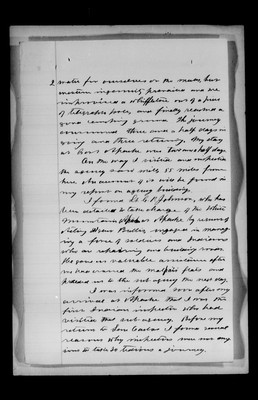 2 water for ourselves or the mules, but
western ingenuity prevailed and we
improvised a whiffletree out of a piece
of telegraph pole, and finally reached a
good camping ground. The journey
consumed three and a half days in
going and three returning. My stay
at Fort Apache was two and a half days.
On the way I visited and inspected
the agency saw mill 55 miles from
here. An account of it will be found in
my report on agency buildings.
I found Lt. C. P. Johnson, who has
been detailed to take charge of the White
Mountain Apaches at Apache by returns of
Acting Agent Bullis, engaged in moving
a force of soldiers and Indians
who are repairing and building roads.
He gave us valuable assistance after
we had crossed the and
us to the sub agency the next day.
I was informed soon after my
arrival at Apache that I was the
first Indian inspector who had
visited that sub agency. Before my
return to San Carlos I found several
reasons why inspectors have not any
to take so tedious a journey.